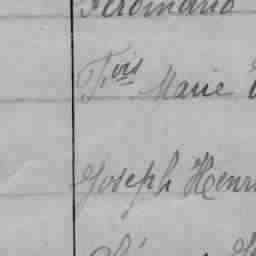 Ferdinand
Fois Marie
Joseph Henri